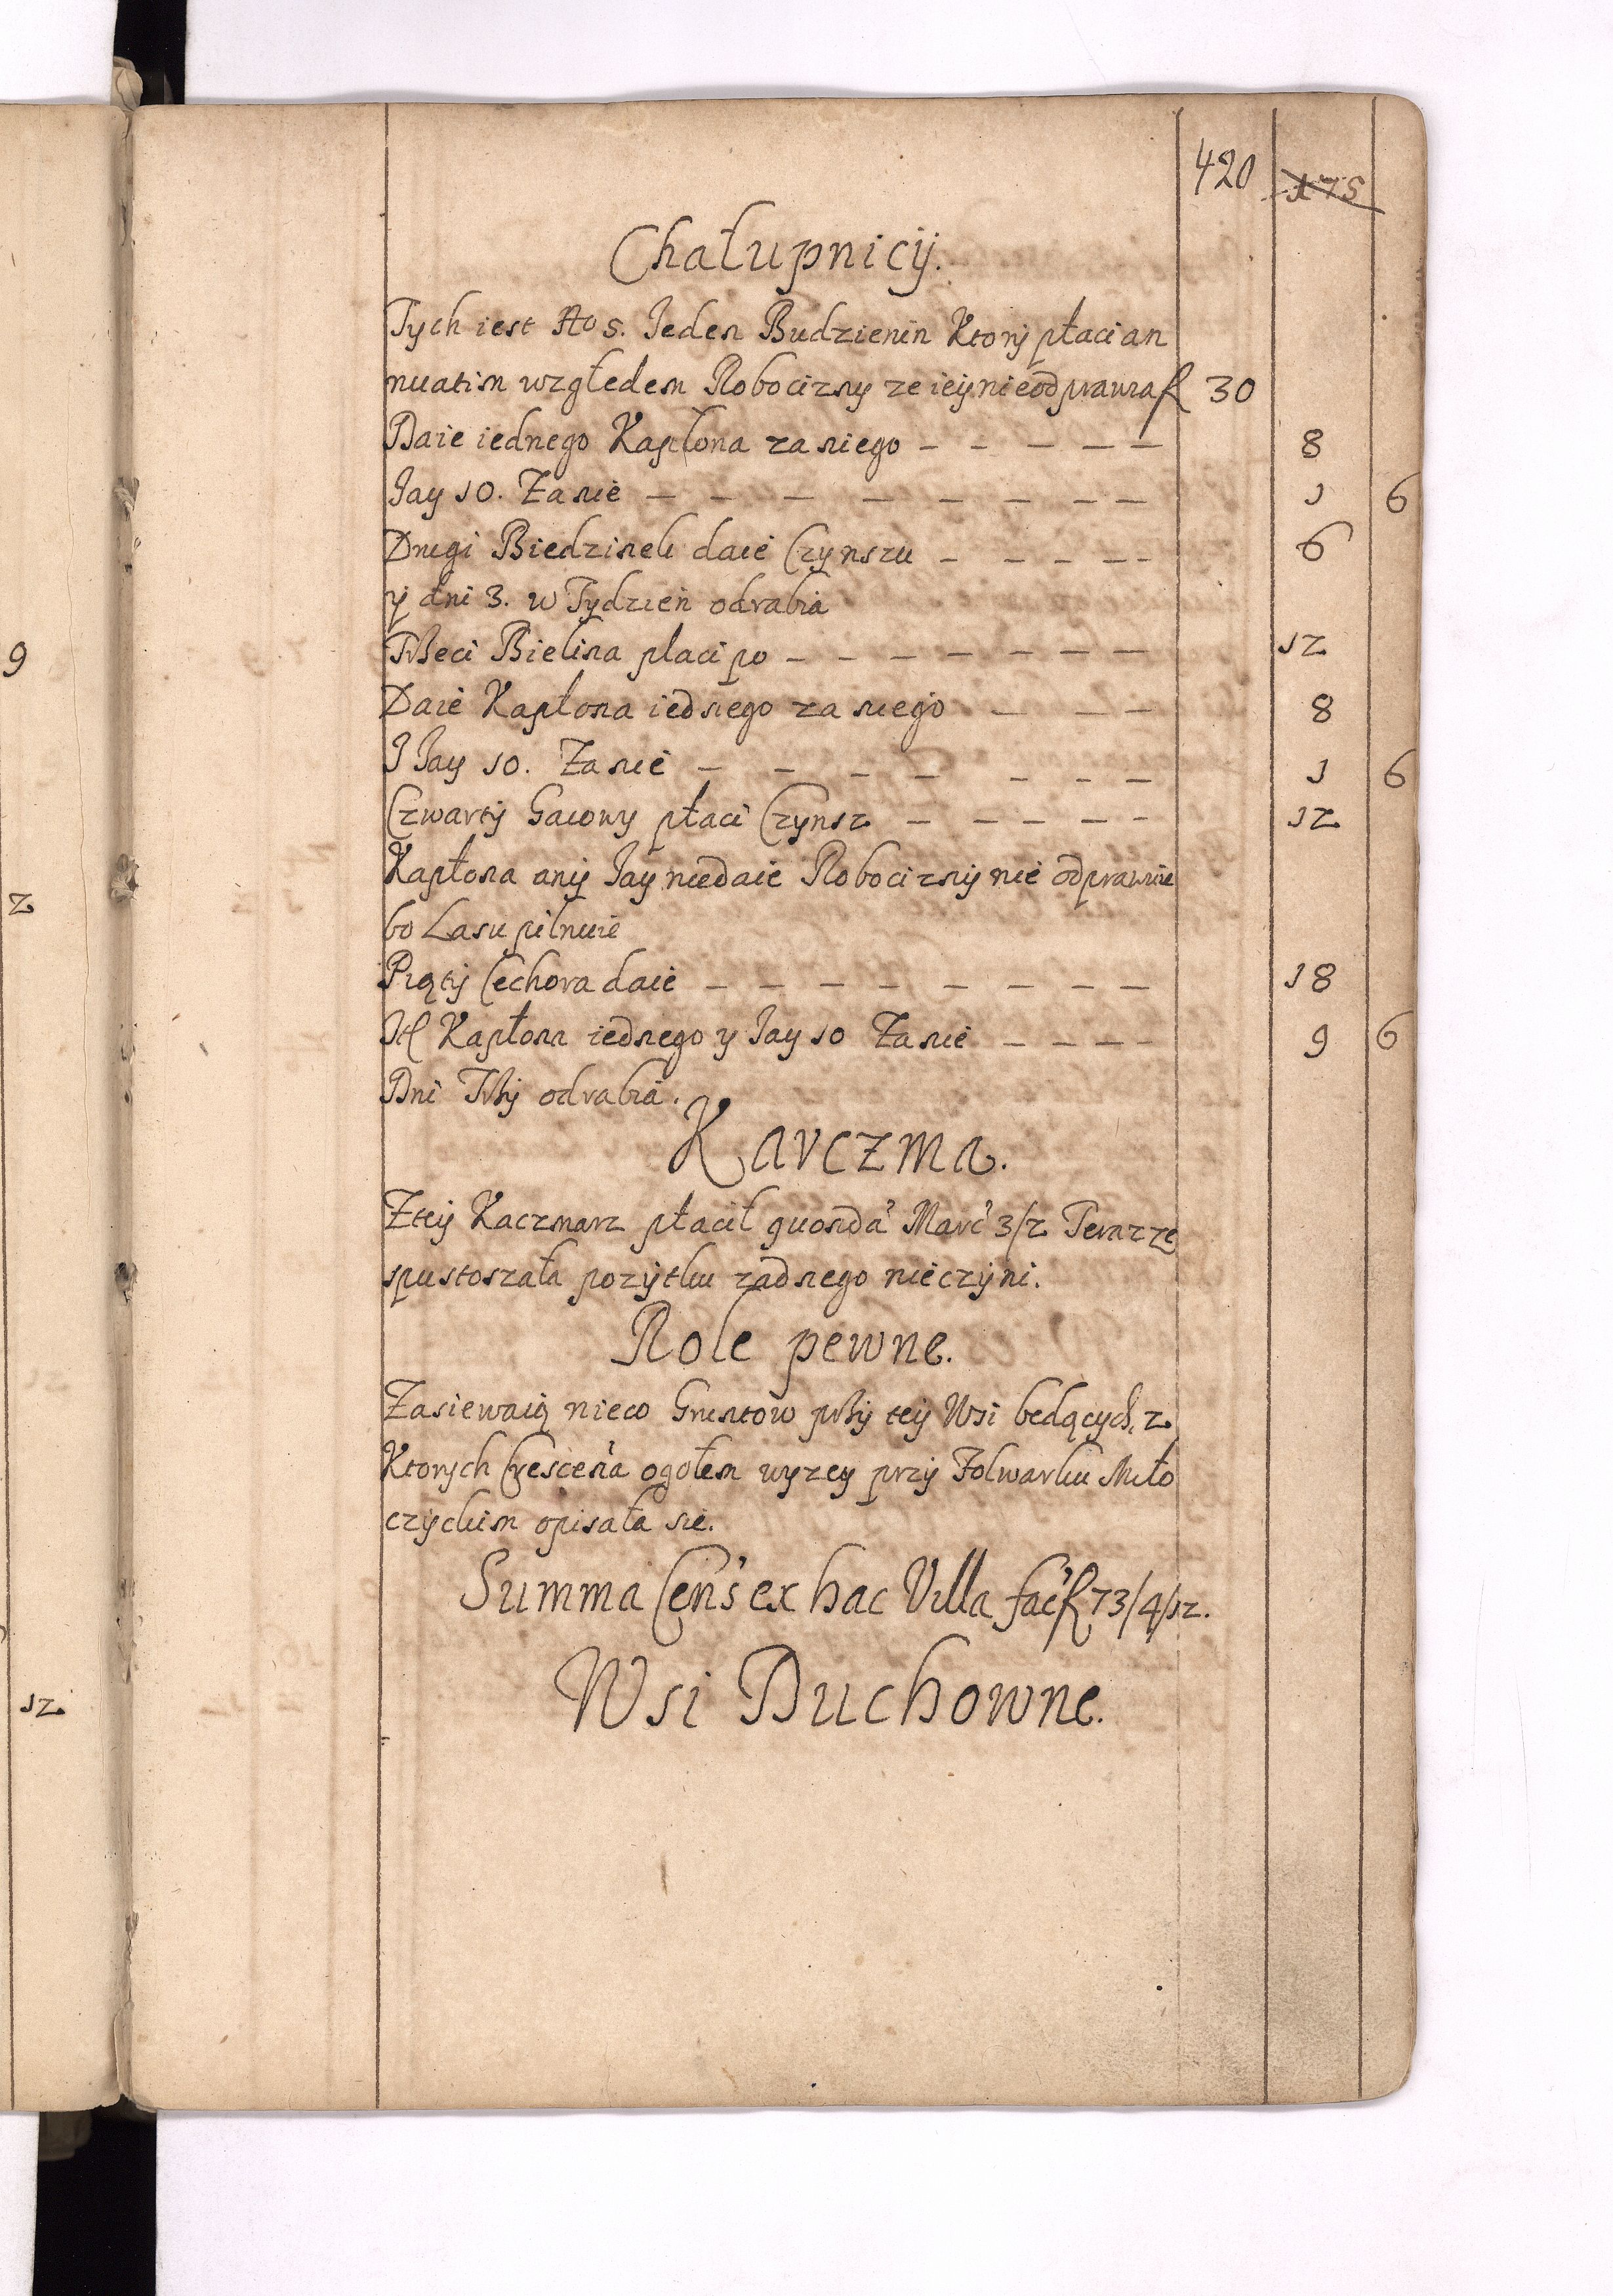 420 175
Chałupnicij.
Tych iest No 5. Jeden Budzienin Ktorij płaci an
nuatim względem Robocizny ze ieij nieodprawia f 30
Daie iednego Kapłona za niego – – – – – 8
Jay 10. Za nie – – – – – – – – 1 6
Drugi Biedzinek daie Czynszu – – – – – 6
ij dni 3. w Tydzień odrabia
Trzeci Bielina placi po – – – – – – – 12
Daie Kapłona iednego za niego – – – 8
I Jay 10. Za nie – – – – – – – 1 6
Czwartij Gaiowy płaci Czynsz – – – – – 12
Kapłona anij Jay niedaie Robociznij nie odprawuie
bo Lasu pilnuie
Piątij Cechora daie – – – – – – – – 18
It Kapłona iednego y Jay 10 Za nie – – – – 9 6
Dni Trzij odrabia.
Karczma.
Zteij Kaczmarz płacił quonda' Marc' 3/2 Teraz ze
spustoszała pozijtku zadnego nieczijni.
Role pewne.
Zasiewaią nieco Gruntow przij teij Wsi będących, z
Ktorych Crescen'a ogołem wyzey przij Folwarku Miło
czijckim opisała się.
Summa Cens' ex hac Villa fac' f 73/4/12.
Wsi Duchowne.
9
2
12